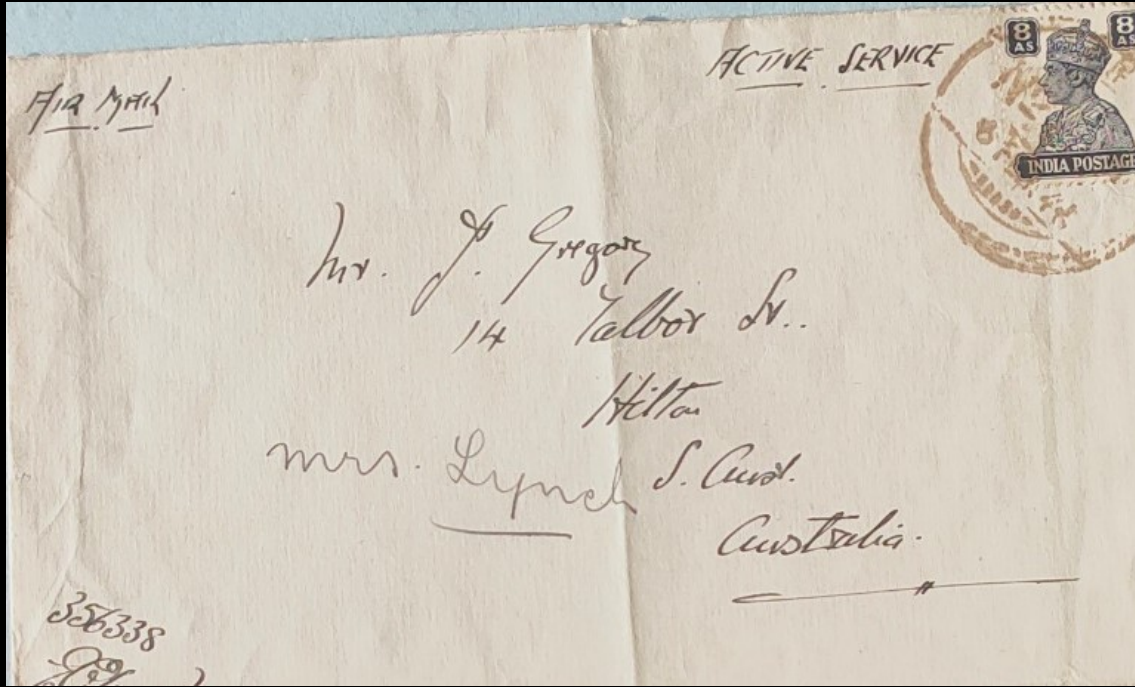 AIR MAIL
ACTIVE SERVICE
8 AS
8 AS
INDIA POSTAGE
Mr. J. Gregory
14 Talbot St..
Hilton
Mrs. Lynch
S. Aust.
Australia.
356338